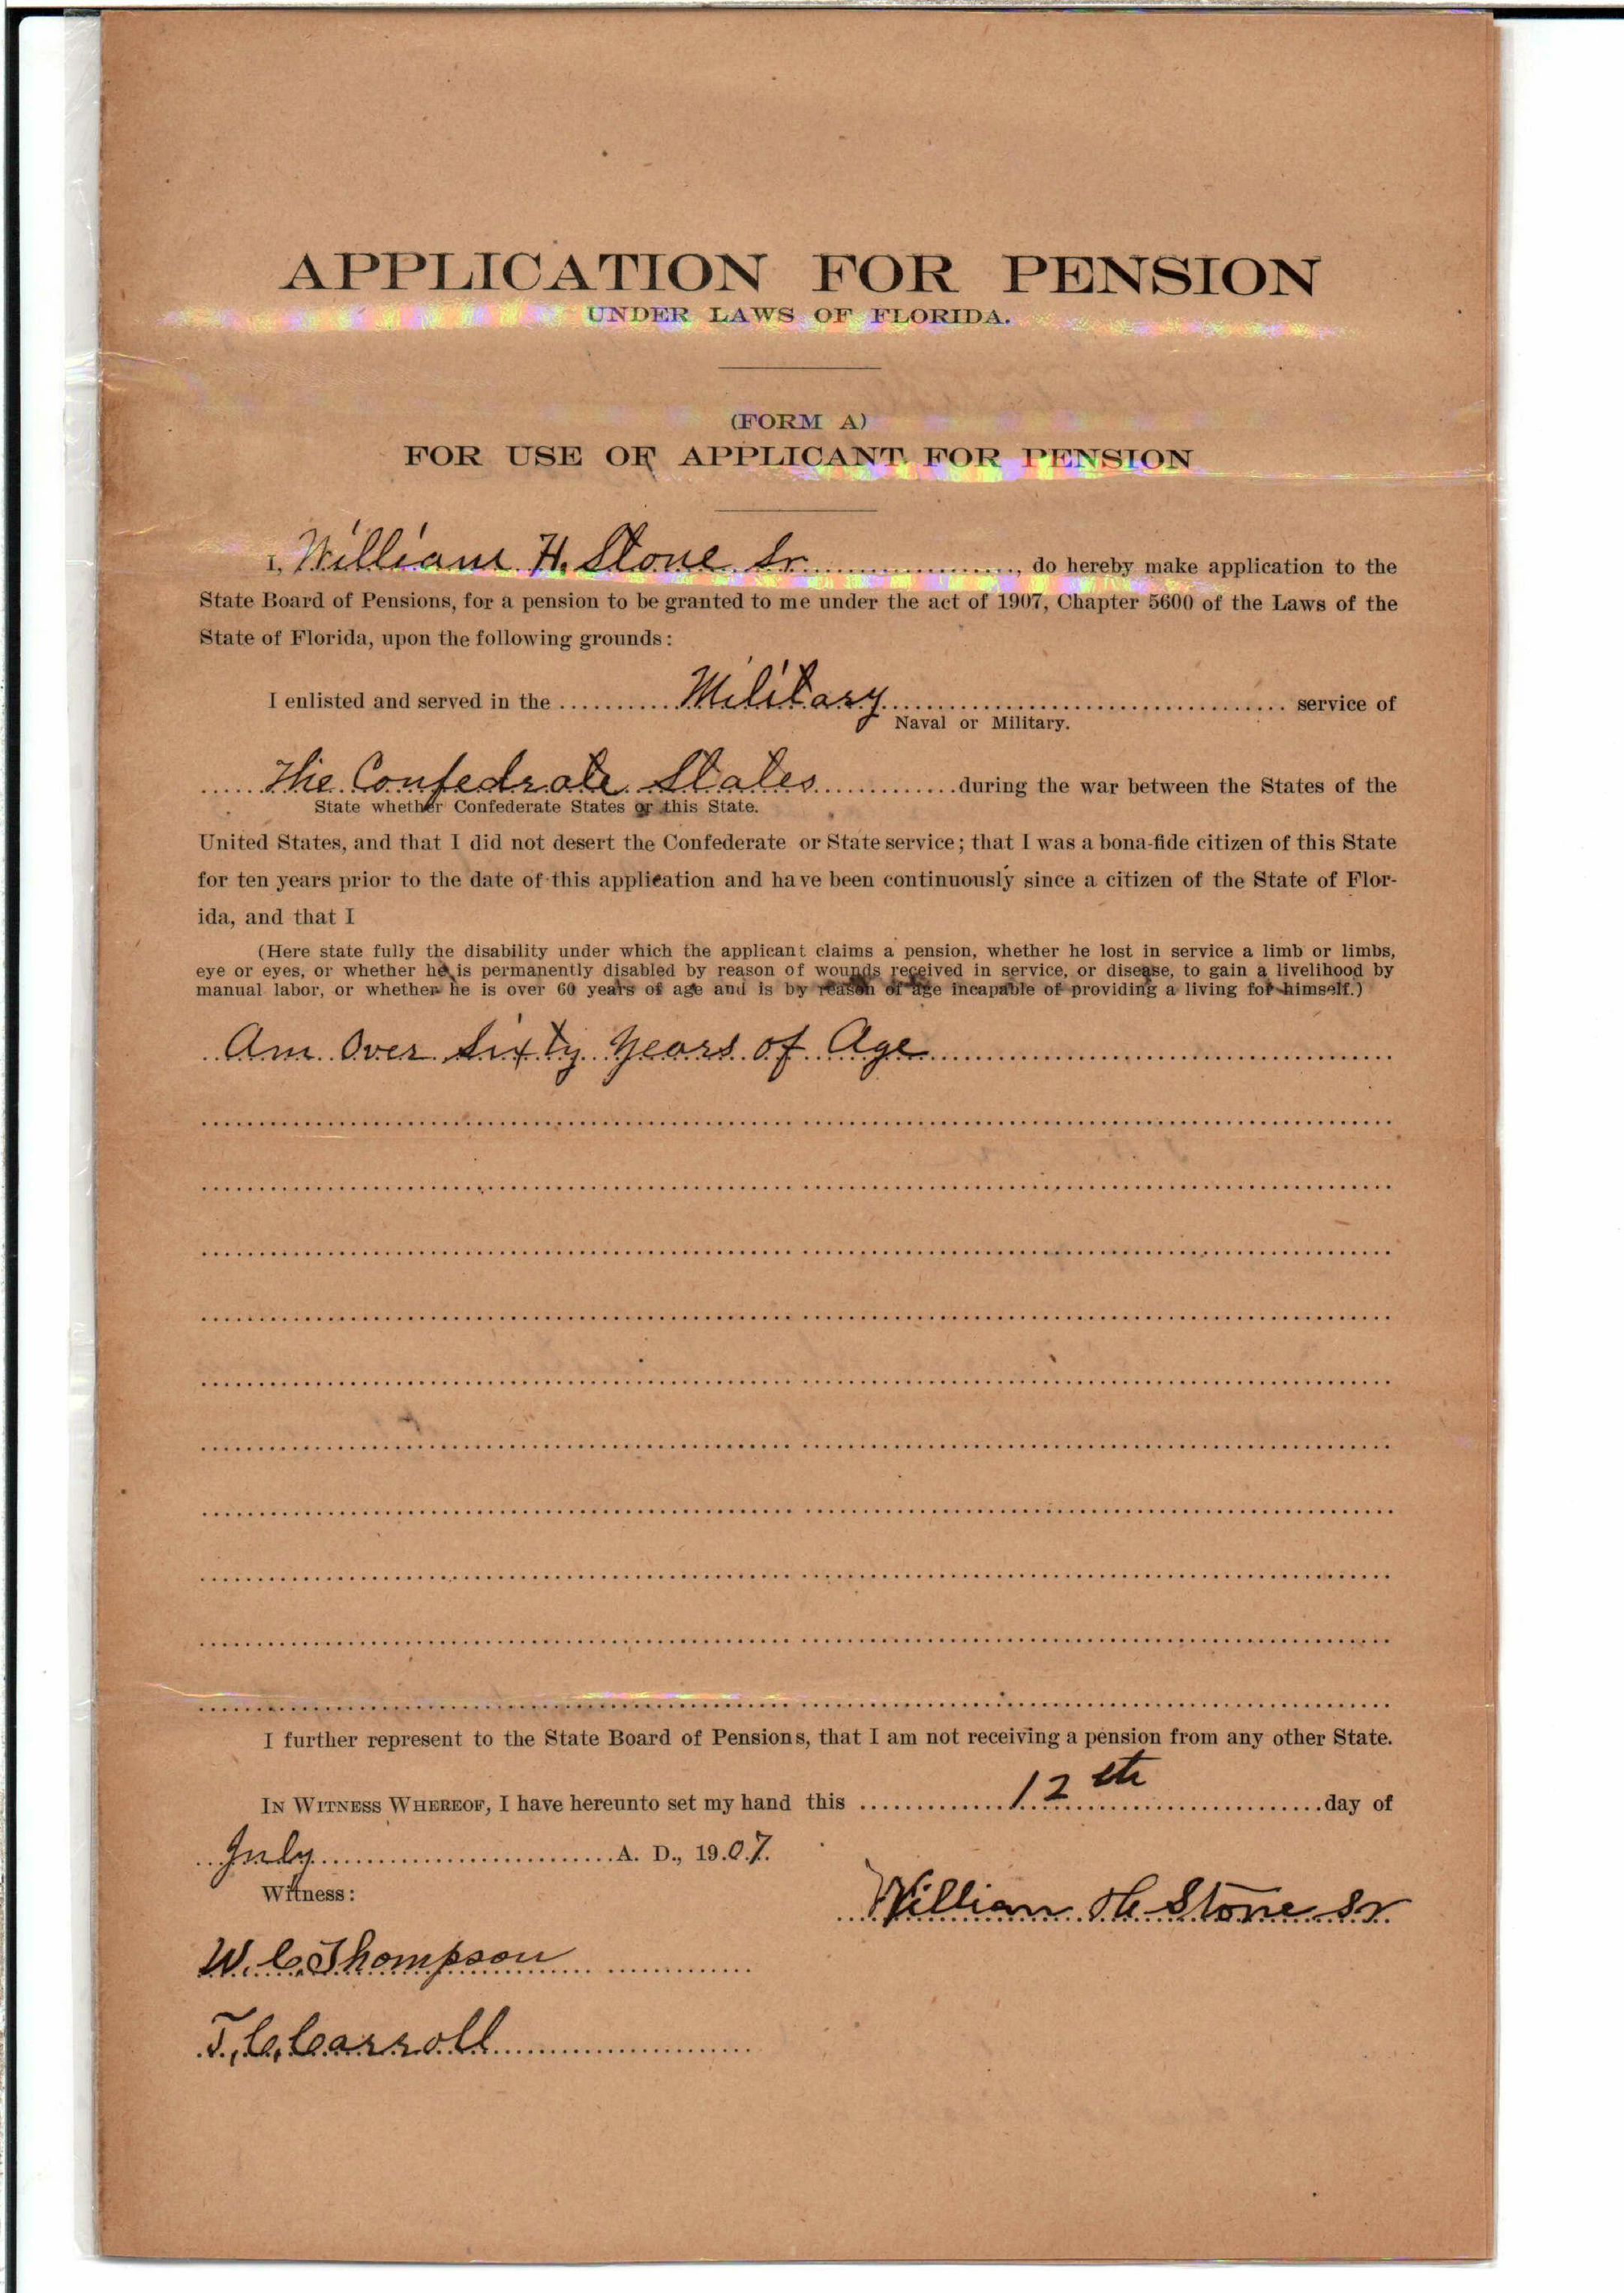 APPLICATION FOR PENSION
UNDER LAWS OF FLORIDA.
(FORM A)
FOR USE OF APPLICANT FOR PENSION
I, William H. Stone Sr ................, do hereby make application to the
State Board of Pensions, for a pension to be granted to me under the act of 1907, Chapter 5600 of the Laws of the
State of Florida, upon the following grounds:
I enlisted and served in the ........... Military ........................................ service of
Naval or Military.
...... The Confedrate States .............. during the war between the States of the
State whether Confederate States or this State.
United States, and that I did not desert the Confederate or State service; that I was a bona-fide citizen of this State
for ten years prior to the date of this application and have been continuously since a citizen of the State of Flor-
ida, and that I
(Here state fully the disability under which the applicant claims a pension, whether he lost in service a limb or limbs,
eye or eyes, or whether he is permanently disabled by reason of wounds received in service, or disease, to gain a livelihood by
manual labor, or whether he is over 60 years of age and is by reason of age incapable of providing a living for himself.)
Am Over Sixty Years of Age
I further represent to the State Board of Pensions, that I am not receiving a pension from any other State.
IN WITNESS WHEREOF, I have hereunto set my hand this .............. 12th .................... day of
July ............................ A. D., 1907.
Witness:
William H Stone Sr
W. C. Thompson
T. C. Carroll